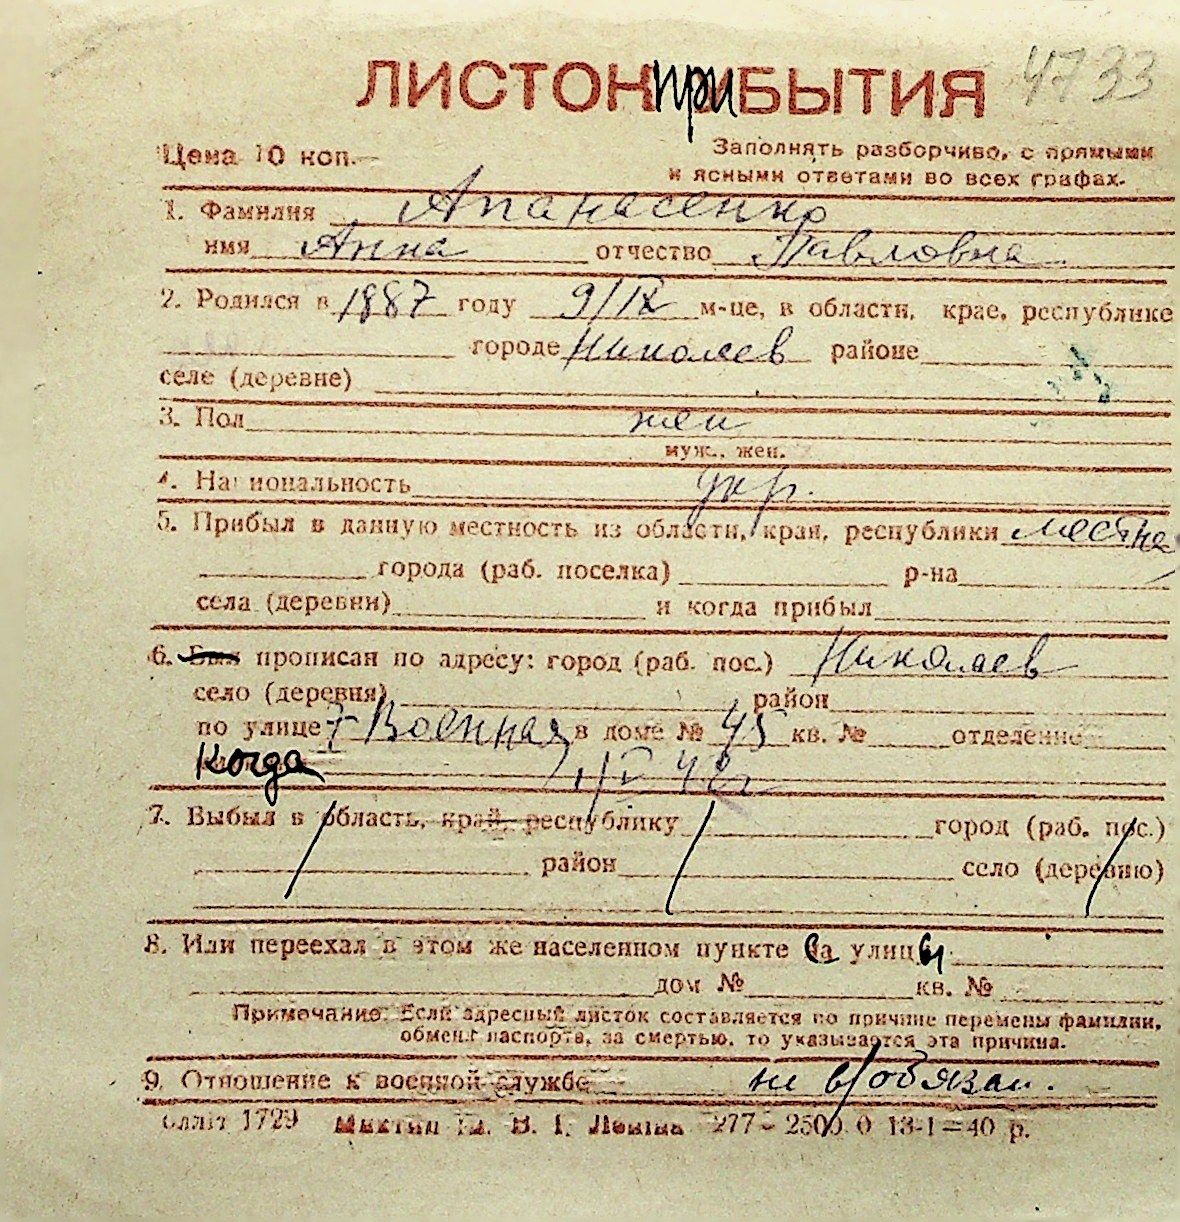 4733
ЛИСТОК при БЫТИЯ
Цена 10 коп.
Заполнять разборчиво, с прямыми
и ясными ответами во всех графах.
1. Фамилия Апанасенко
имя Анна отчество Павловна
2. Родился в 1887 году 9/IX м-це, в области, крае, республике
городе Николаев районе
селе (деревне)
3. Пол жен
муж., жен.
4. Национальность укр.
5. Прибыл в данную местность из области, края, республики местная
города (раб. поселка) р-на
села (деревни) и когда прибыл
6. Был прописан по адресу: город (раб. пос.) Николаев
село (деревня) район
по улице 7-Военная в доме № 45 кв. № отделение
Когда 1/IV 42г
7. Выбыл в область, край, республику город (раб. пос.)
район село (деревню)
8. Или переехал в этом же населенном пункте са улицы
дом № кв. №
Примечание: Если адресный листок составляется по причине перемены фамилии,
обмена паспорта, за смертью, то указывается эта причина.
9. Отношение к военной службе не в/обязан.
1729 В. І. Леніна 277 - 2500 0 13-1=40 р.